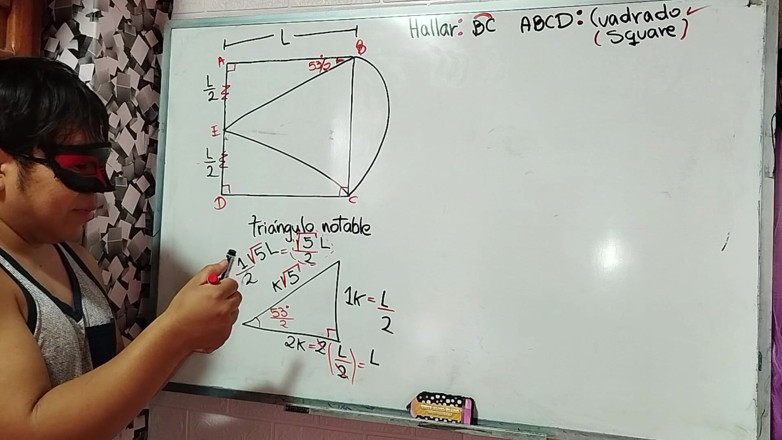 Hallar: BC ABCD: Cuadrado
(Square)
L
A
B
53°/2
L/2
E
L/2
D
C
triángulo notable
1/2 √5L = √5/2 L
K√5
1K = L/2
53°/2
2K = 2(L/2) = L